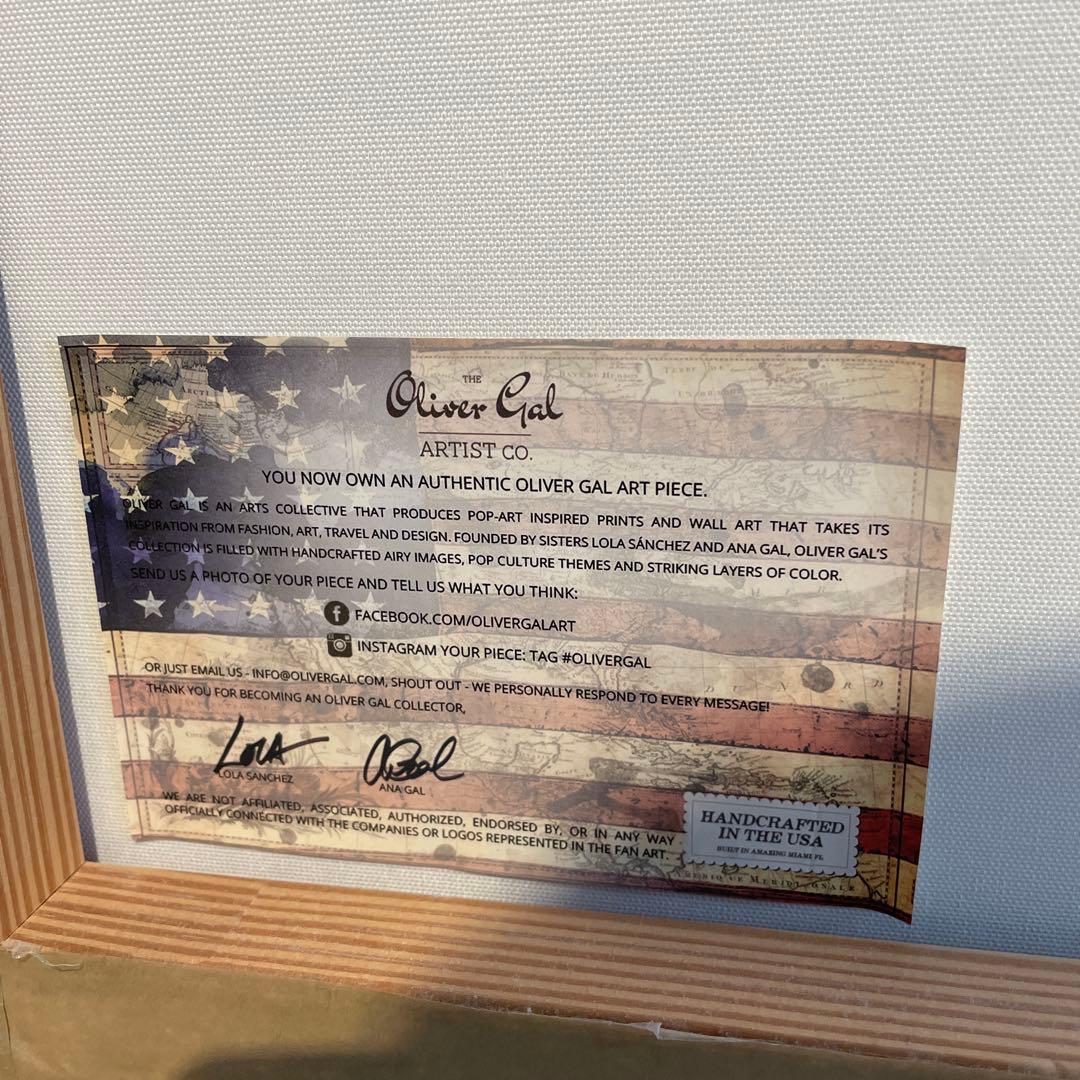 THE
Oliver Gal
ARTIST CO.
YOU NOW OWN AN AUTHENTIC OLIVER GAL ART PIECE.
OLIVER GAL IS AN ARTS COLLECTIVE THAT PRODUCES POP-ART INSPIRED PRINTS AND WALL ART THAT TAKES ITS
INSPIRATION FROM FASHION, ART, TRAVEL AND DESIGN. FOUNDED BY SISTERS LOLA SÁNCHEZ AND ANA GAL, OLIVER GAL'S
COLLECTION IS FILLED WITH HANDCRAFTED AIRY IMAGES, POP CULTURE THEMES AND STRIKING LAYERS OF COLOR.
SEND US A PHOTO OF YOUR PIECE AND TELL US WHAT YOU THINK:
FACEBOOK.COM/OLIVERGALART
INSTAGRAM YOUR PIECE: TAG #OLIVERGAL
OR JUST EMAIL US - INFO@OLIVERGAL.COM, SHOUT OUT - WE PERSONALLY RESPOND TO EVERY MESSAGE!
THANK YOU FOR BECOMING AN OLIVER GAL COLLECTOR,
LOLA
LOLA SANCHEZ
ANA GAL
WE ARE NOT AFFILIATED, ASSOCIATED, AUTHORIZED, ENDORSED BY, OR IN ANY WAY
OFFICIALLY CONNECTED WITH THE COMPANIES OR LOGOS REPRESENTED IN THE FAN ART.
HANDCRAFTED
IN THE USA
BUILT IN AMAZING MIAMI, FL